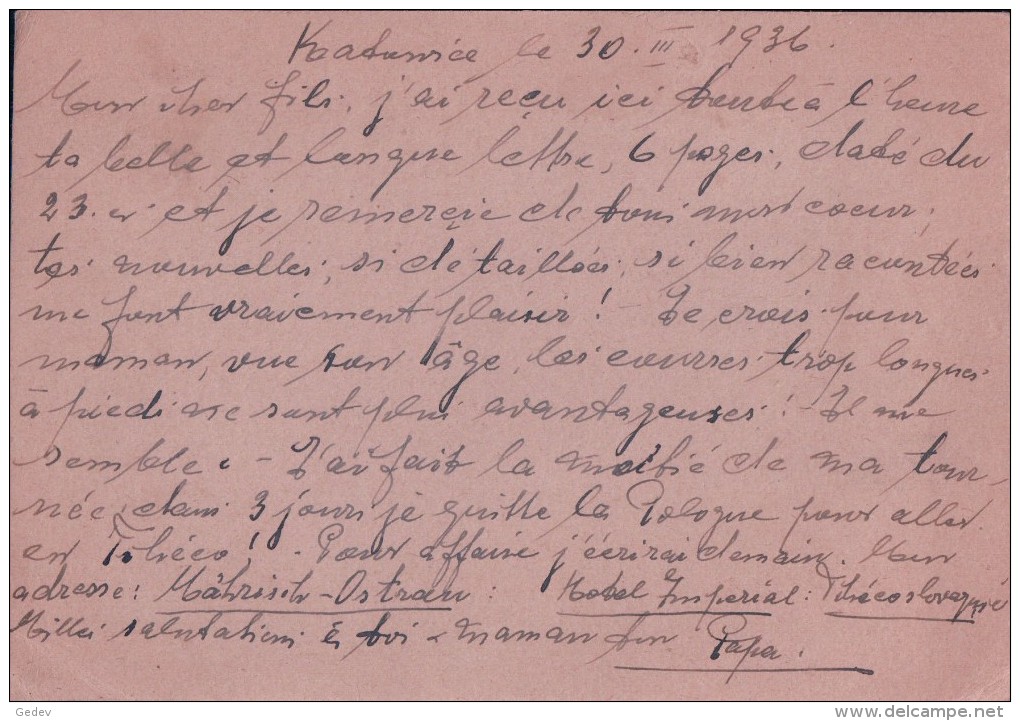 Katowice le 30. III 1936.
Mon cher fils, j'ai reçu ici tout à l'heure
ta belle et longue lettre, 6 pages, daté du
23. et je remerçie de tout mon coeur,
tes nouvelles, si détaillées, si bien racontées
me font vraiement plaisir! - Je crois pour
maman, vue son âge, les courses trop longues
à pied ne sont plus avantageuses! - Il me
semble. - J'ai fait la moitié de ma tour-
née, dans 3 jours je quitte la Pologne pour aller
en Tchéco! - Pour affaire j'écrirai demain. Mon
adresse: Mährisch-Ostrau: Hotel Imperial: Tchécoslovaquie
Milles salutations à toi & maman ton Papa.
Gedev
www.delcampe.net